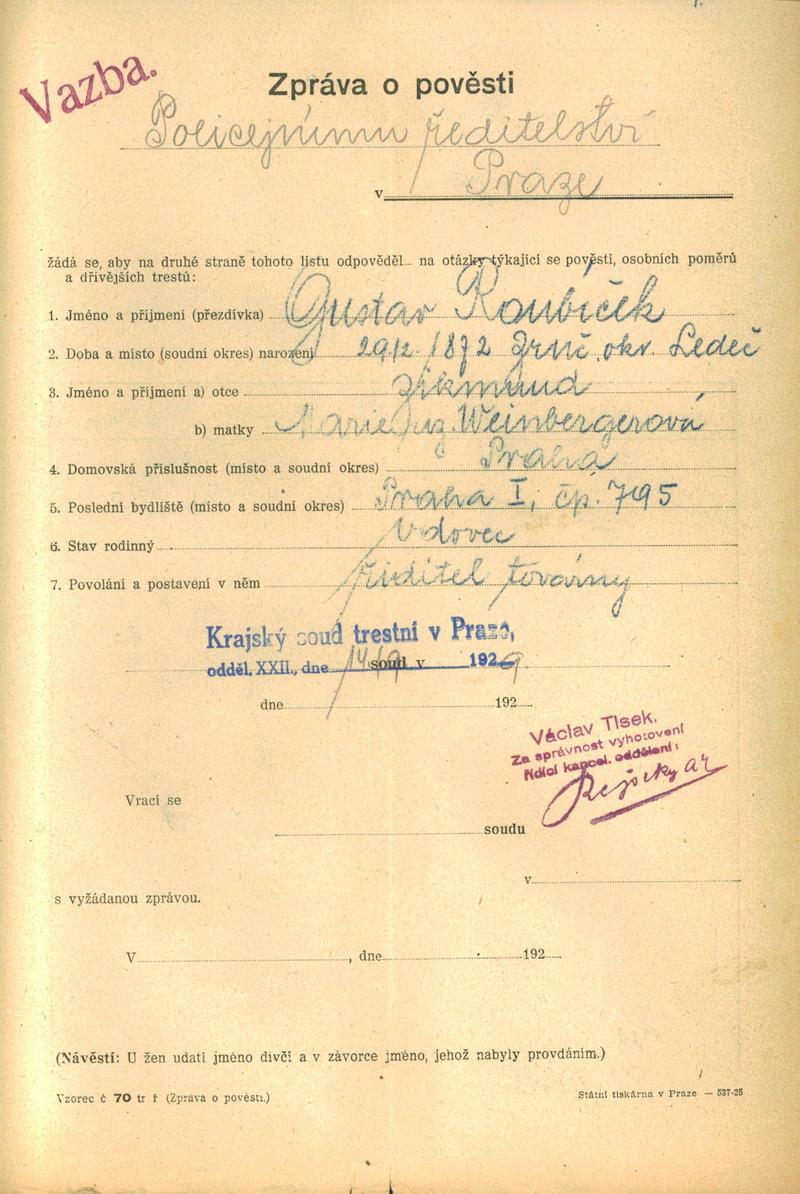 Vazba.
Zpráva o pověsti
Policejnímu ředitelství
v Praze
žádá se, aby na druhé straně tohoto listu odpověděl... na otázky týkající se pověsti, osobních poměrů
a dřívějších trestů:
1. Jméno a příjmení (přezdívka) Gustav Roubíček
2. Doba a místo (soudní okres) narození 1872 okr. Ledeč
3. Jméno a příjmení a) otce Zikmund
b) matky Marie Weinbergerová
4. Domovská příslušnost (místo a soudní okres) Praha
5. Poslední bydliště (místo a soudní okres) Praha I, čp. 795
6. Stav rodinný Vdovec
7. Povolání a postavení v něm ředitel továrny
Krajský soud trestní v Praze,
odděl. XXII., dne soud v 192
dne 192
Václav Tlsek.
Za správnost vyhotovení
řídicí kancel. oddělení:
Vrací se
soudu
v
s vyžádanou zprávou.
V, dne 192
(Návěstí: U žen udati jméno dívčí a v závorce jméno, jehož nabyly provdáním.)
Vzorec č 70 tr ř (Zpráva o pověsti.)
Státní tiskárna v Praze — 537-25